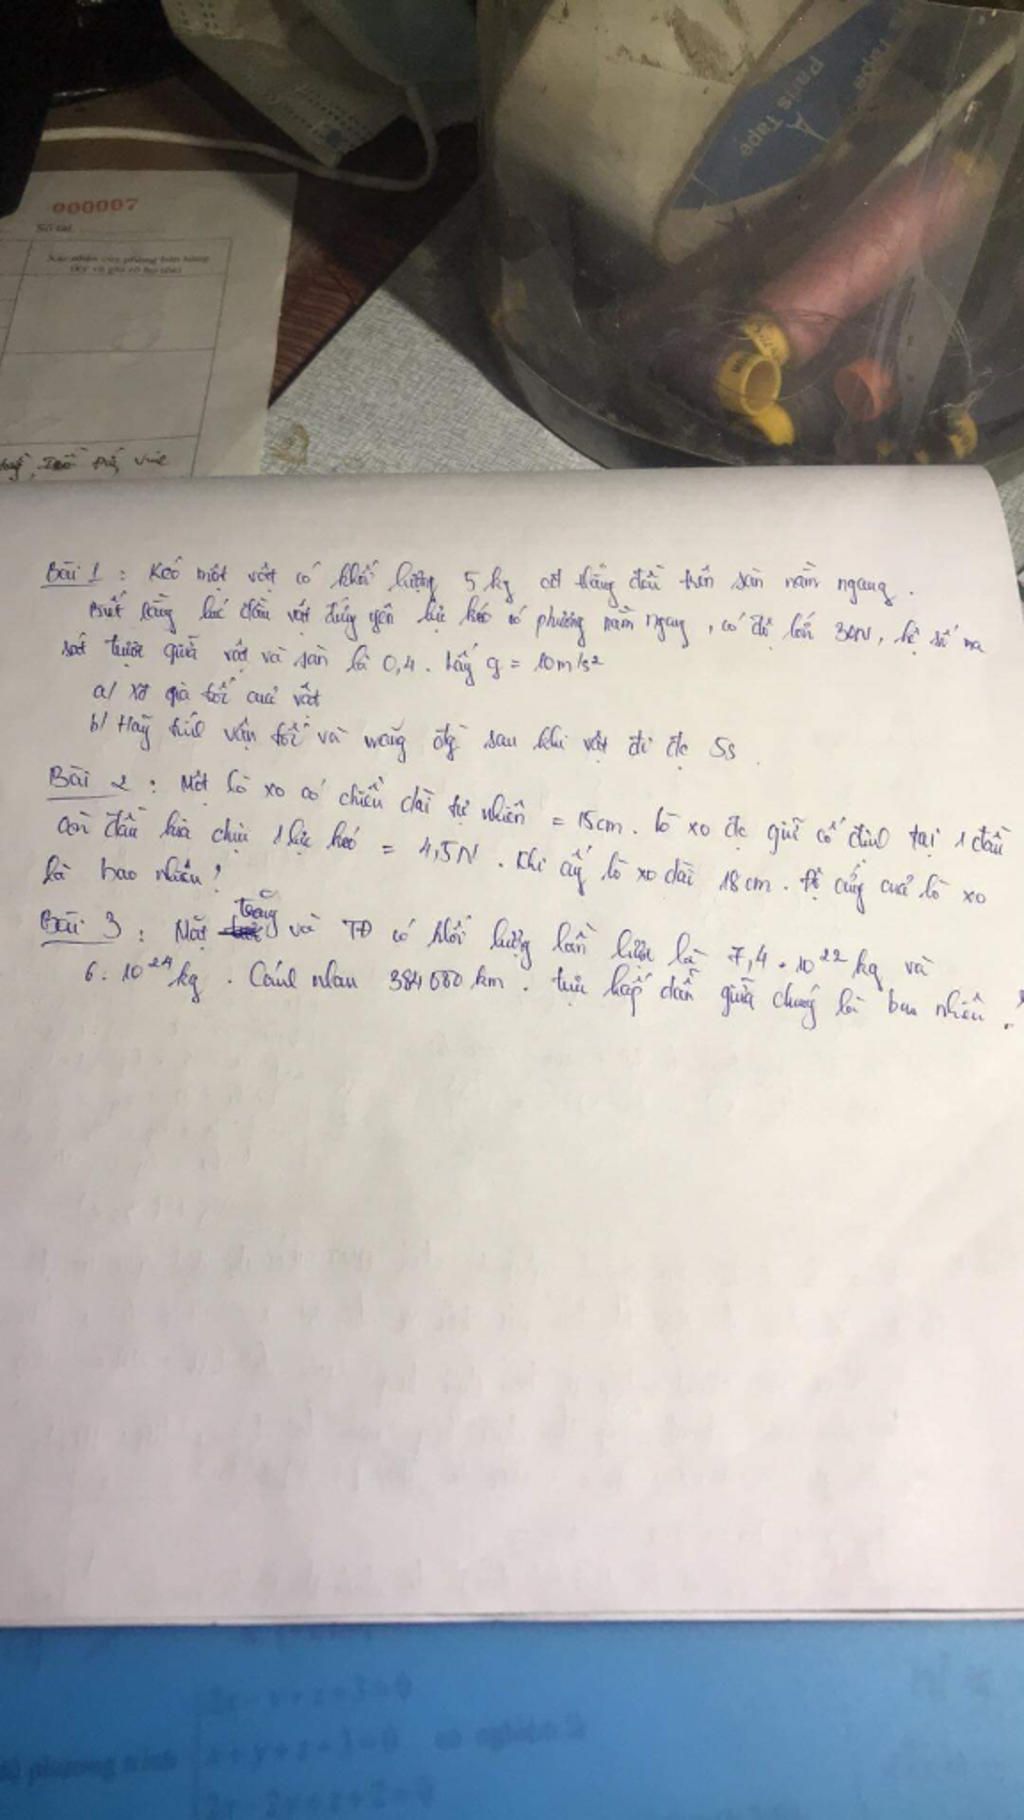 000007
Số tài
Xác nhận của phòng bán hàng
(Ký và ghi rõ họ tên)
Paris Tape
Tapes
Bài 1 : Kéo một vật có khối lượng 5 kg cđ thẳng đều trên sàn nằm ngang.
Biết rằng lúc đầu vật đứng yên lực kéo có phương nằm ngang, có độ lớn 30N, hệ số ma
sát trượt giữa vật và sàn là 0,4. Lấy g = 10m/s²
a/ XĐ gia tốc của vật
b/ Hãy tính vận tốc và quãng đg sau khi vật đi đc 5s
Bài 2 : Một lò xo có chiều dài tự nhiên = 15cm. lò xo đc giữ cố định tại 1 đầu
còn đầu kia chịu 1 lực kéo = 4,5N. Khi ấy lò xo dài 18cm. Độ cứng của lò xo
là bao nhiêu?
Bài 3 : Mặt trăng và TĐ có khối lượng lần lượt là 7,4 . 10²² kg và
6. 10²⁴ kg . Cách nhau 384000 km. lực hấp dẫn giữa chúng là bao nhiêu ?
phương trình